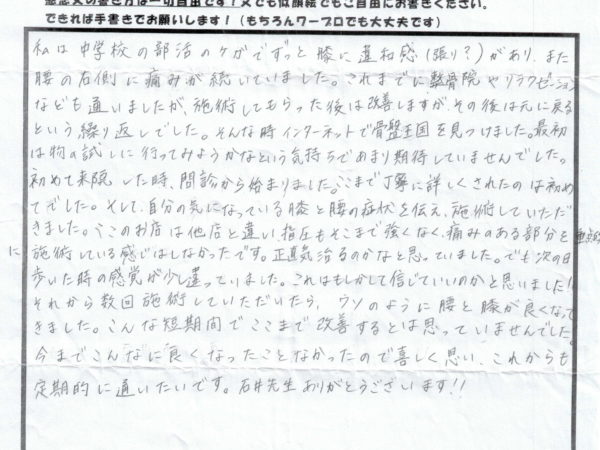 感想文の書き方は一切自由です！文でも似顔絵でもご自由にお書きください。
できれば手書きでお願いします！（もちろんワープロでも大丈夫です）
私は中学校の部活のケガでずっと膝に違和感(張り？)があり、また
腰の右側に痛みが続いていました。これまでに整骨院やリラクゼーション
なども通いましたが、施術してもらった後は改善しますがその後は元に戻る
という繰り返しでした。そんな時インターネットで骨盤王国を見つけました。最初
は物の試しに行ってみようかなという気持ちであまり期待していませんでした。
初めて来院した時、問診から始まりました。ここまで丁寧に詳しくされたのは初め
てでした。そして、自分の気になっている膝と腰の症状を伝え、施術していただ
きました。ここのお店は他店と違い、指圧もそこまで強くなく、痛みのある部分を重点的
に施術している感じはしなかったです。正直気治るのかなと思っていました。でも次の日
歩いた時の感覚が少し違っていました。これはもしかして信じていいのかと思いました！
それから数回施術していただいたら、ウソのように腰と膝が良くなって
きました。こんな短期間でここまで改善するとは思っていませんでした。
今までこんなに良くなったことなかったので喜しく思い、これからも
定期的に通いたいです。石井先生ありがとうございます!!